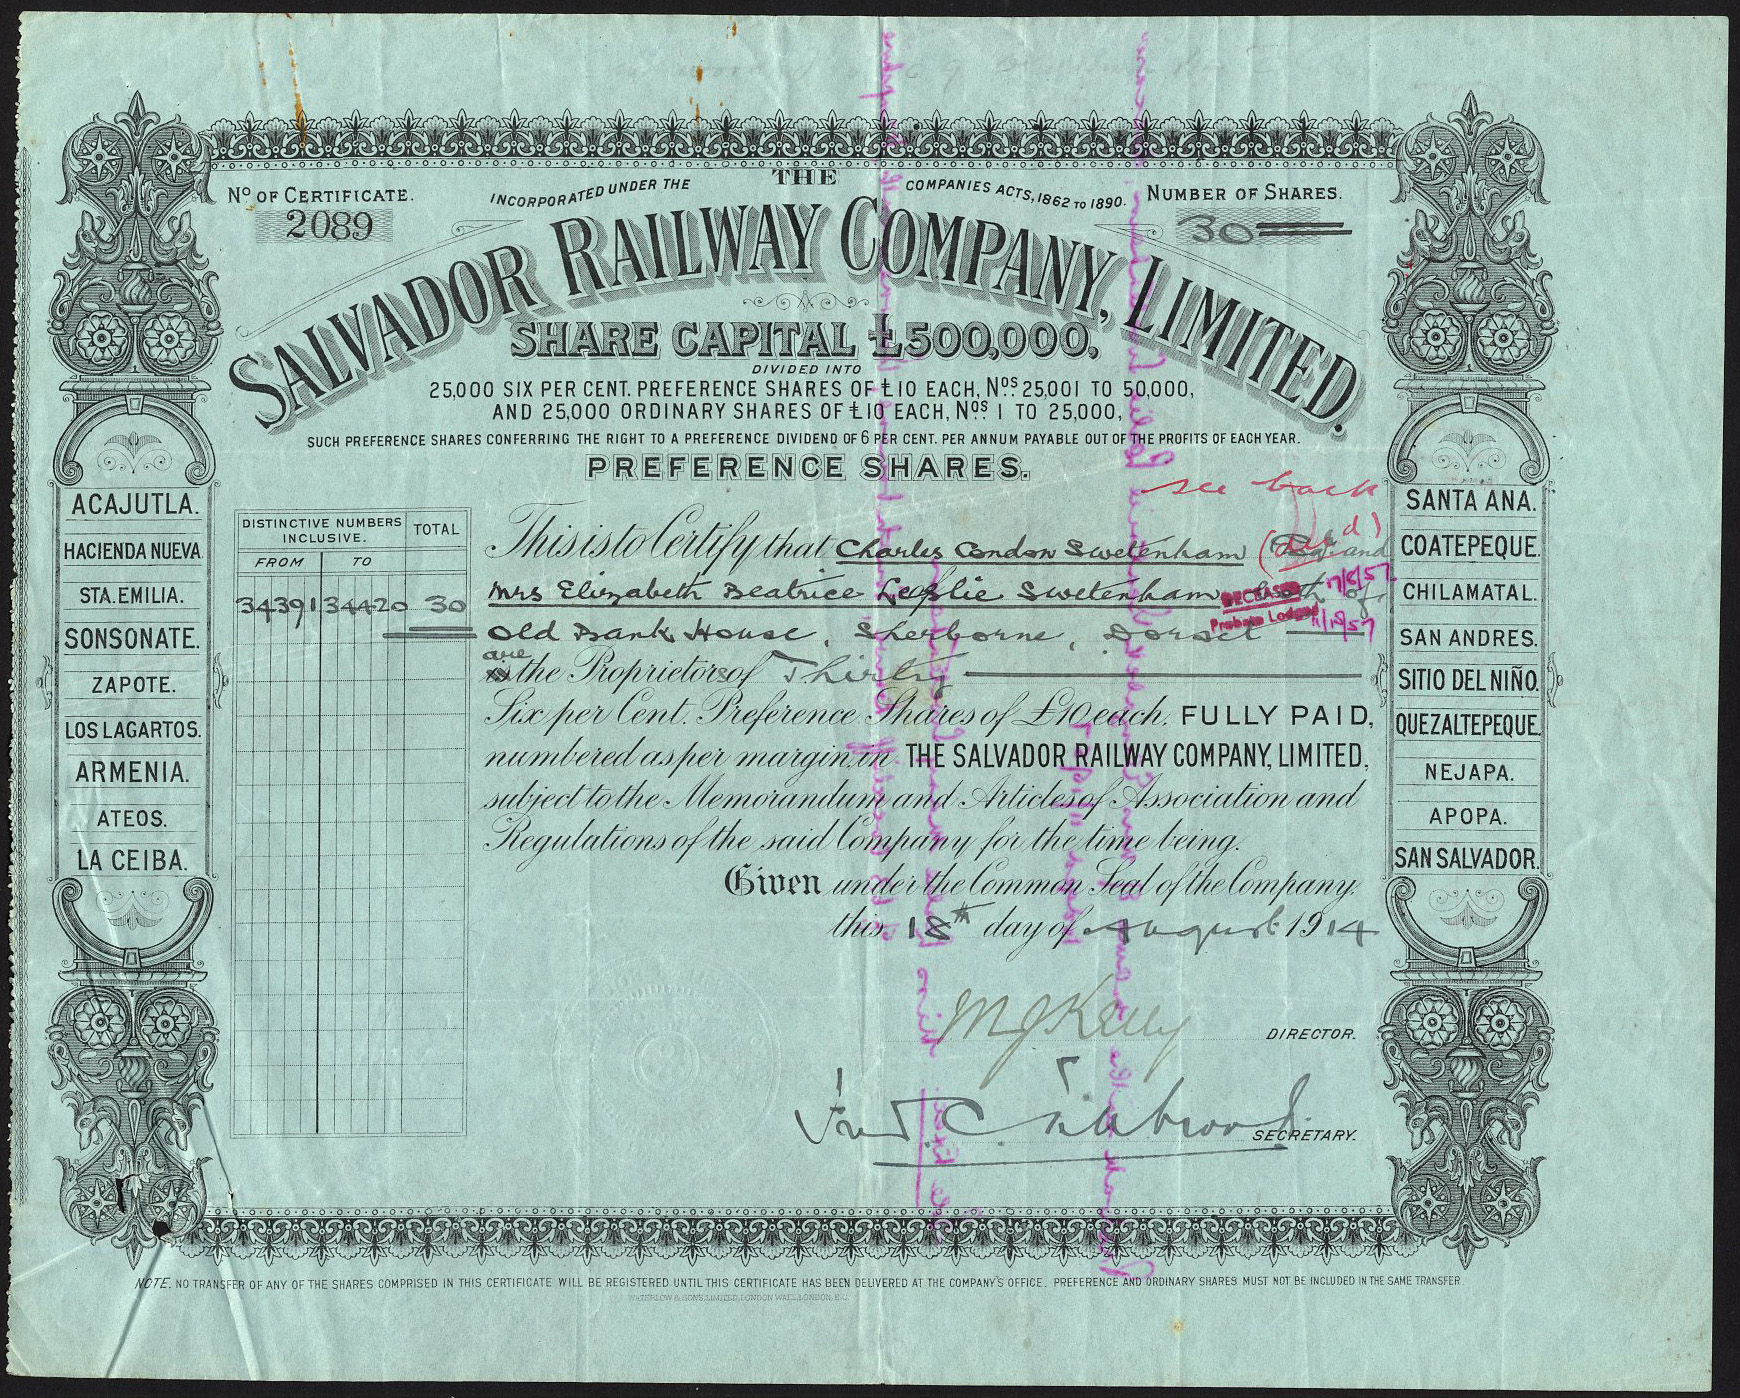 No. OF CERTIFICATE.
2089
INCORPORATED UNDER THE COMPANIES ACTS, 1862 TO 1890.
NUMBER OF SHARES.
30
THE
SALVADOR RAILWAY COMPANY, LIMITED.
SHARE CAPITAL £500,000,
DIVIDED INTO
25,000 SIX PER CENT. PREFERENCE SHARES OF £10 EACH, Nos. 25,001 TO 50,000,
AND 25,000 ORDINARY SHARES OF £10 EACH, Nos. 1 TO 25,000,
SUCH PREFERENCE SHARES CONFERRING THE RIGHT TO A PREFERENCE DIVIDEND OF 6 PER CENT. PER ANNUM PAYABLE OUT OF THE PROFITS OF EACH YEAR.
PREFERENCE SHARES.
see back
ACAJUTLA.
HACIENDA NUEVA
STA. EMILIA.
SONSONATE.
ZAPOTE.
LOS LAGARTOS.
ARMENIA.
ATEOS.
LA CEIBA.
DISTINCTIVE NUMBERS INCLUSIVE.
TOTAL
FROM TO
34391 34420 30
This is to Certify that Charles Condon Swetenham (decd) and
Mrs Elizabeth Beatrice Leslie Swetenham both of
DECEASED 17/8/57
Probate Lodged
Old Bank House, Sherborne, Dorset
are the Proprietors of Thirty
Six per Cent. Preference Shares of £10 each, FULLY PAID,
numbered as per margin, in THE SALVADOR RAILWAY COMPANY, LIMITED,
subject to the Memorandum and Articles of Association and
Regulations of the said Company for the time being.
Given under the Common Seal of the Company,
this 18th day of August 1914
M J Kelly
DIRECTOR.
SECRETARY.
SANTA ANA.
COATEPEQUE.
CHILAMATAL.
SAN ANDRES.
SITIO DEL NIÑO.
QUEZALTEPEQUE.
NEJAPA.
APOPA.
SAN SALVADOR.
NOTE. NO TRANSFER OF ANY OF THE SHARES COMPRISED IN THIS CERTIFICATE WILL BE REGISTERED UNTIL THIS CERTIFICATE HAS BEEN DELIVERED AT THE COMPANY'S OFFICE. PREFERENCE AND ORDINARY SHARES MUST NOT BE INCLUDED IN THE SAME TRANSFER
WATERLOW & SONS, LIMITED, LONDON WALL, LONDON, E.C.